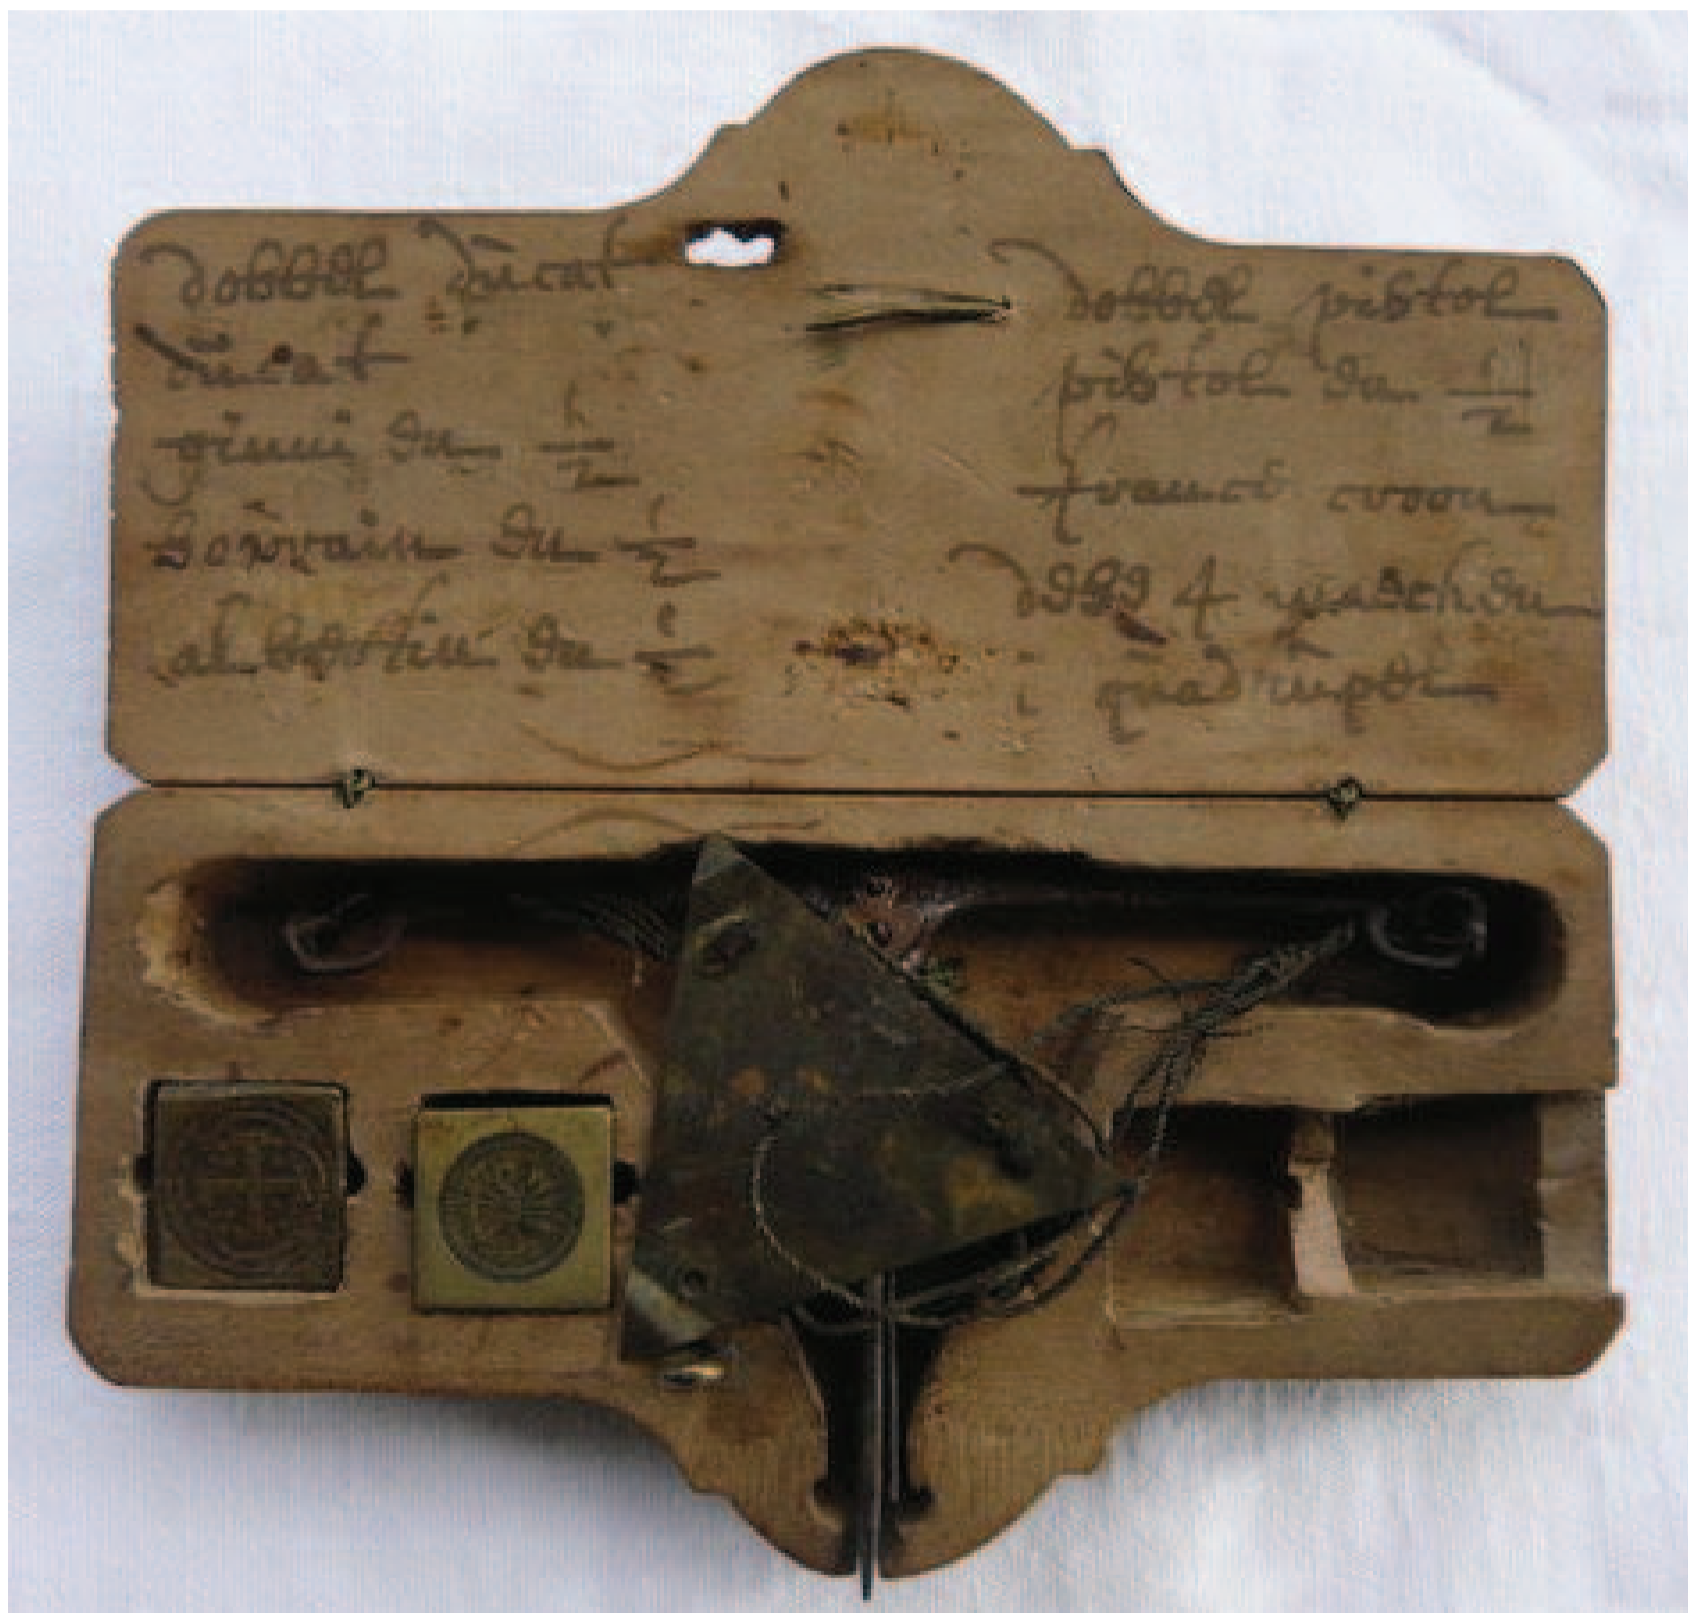 dobbel ducat
ducat
ginni en 1/2
sovrain en 1/2
albertin en 1/2
dobbel pistol
pistol en 1/2
franc croon
dese 4 maeken
1 quadrupel